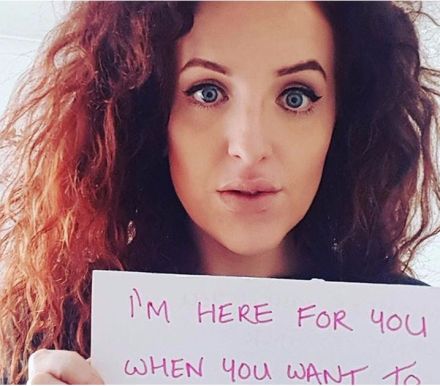 I'M HERE FOR YOU
WHEN YOU WANT TO